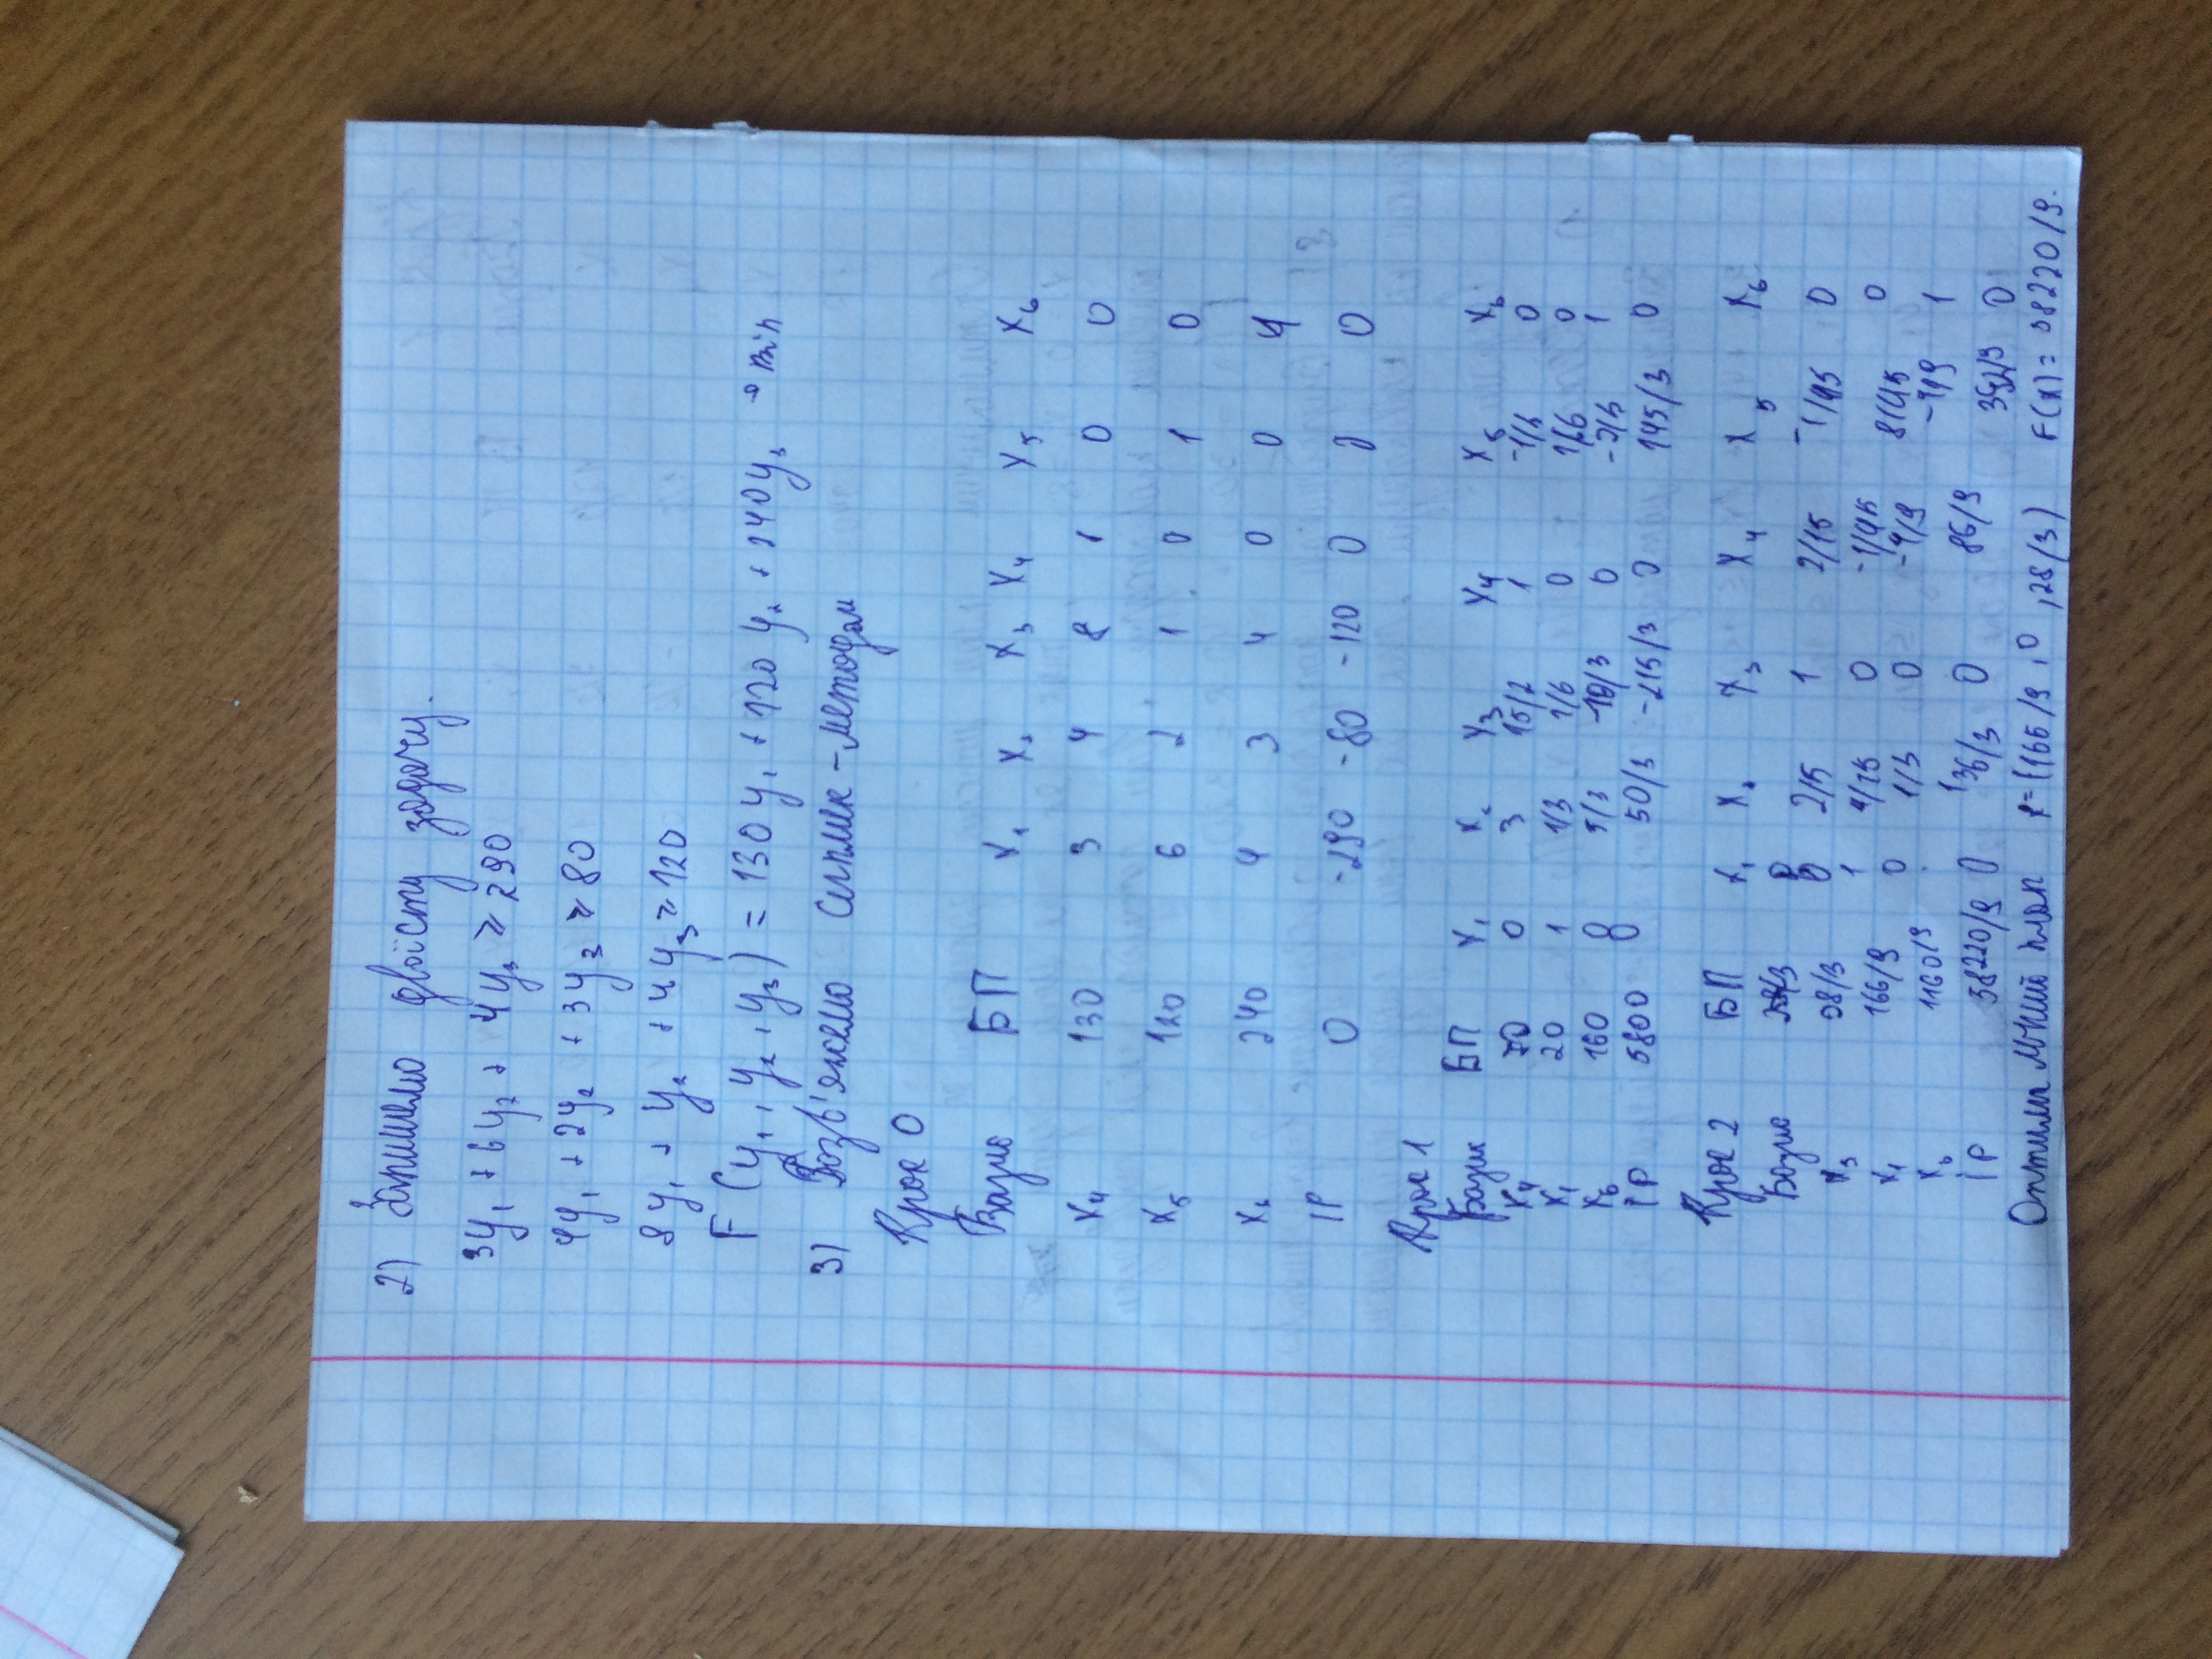 2) Запишемо двоїсту задачу.
3y₁ + 6y₂ + 4y₃ ≥ 290
4y₁ + 2y₂ + 3y₃ ≥ 80
8y₁ + y₂ + 4y₃ ≥ 120
F(y₁, y₂, y₃) = 130y₁ + 120y₂ + 240y₃ → min
3) Розв'яжемо симплек-методом
Крок 0
Базис БП x₁ x₂ x₃ x₄ x₅ x₆
x₄ 130 3 4 8 1 0 0
x₅ 120 6 2 1 0 1 0
x₆ 240 4 3 4 0 0 1
ІР 0 -290 -80 -120 0 0 0
Крок 1
Базис БП x₁ x₂ x₃ x₄ x₅ x₆
x₄ 70 0 3 15/2 1 0
x₁ 20 1 1/3 1/6 0 1/6 0
x₆ 160 0 5/3 -10/3 0 1
ІР 5800 0 50/3 -215/3 0 145/3 0
Крок 2 БП x₁ x₂ x₃ x₄ x₅ x₆
Базис
x₃ 28/3 0 2/5 1 2/15 -1/45 0
x₁ 166/9 1 4/15 0 -1/45 8/45 0
x₆ 1160/9 0 1/3 0 -4/9 1
ІР 58220/9 0 136/3 0 86/9 392/9 0
Оптимальний план x=(166/9, 0, 28/3) F(x) = 58220/9.